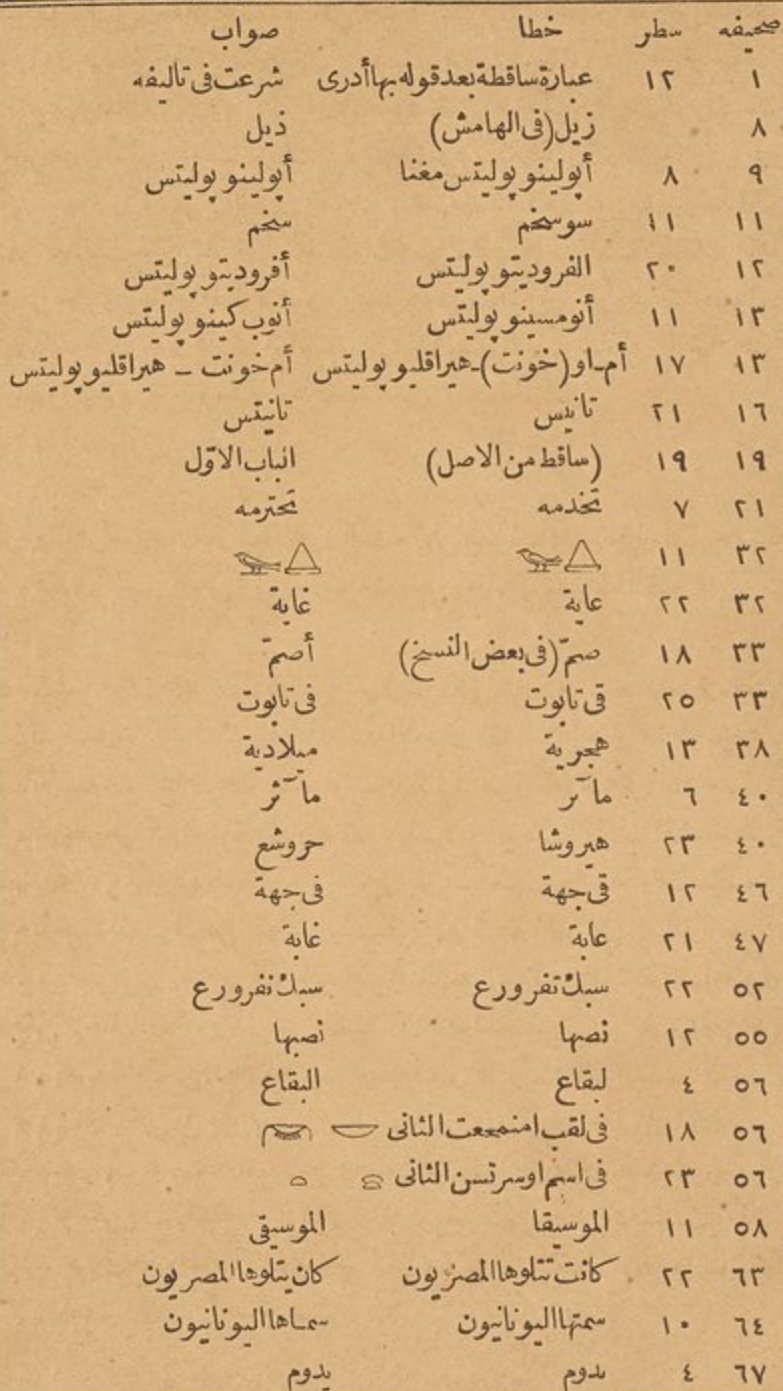 صحيفه سطر خطا صواب
١ ١٢ عبارة ساقطة بعد قوله بها أدرى شرعت فى تاليفه
٨ زيل (فى الهامش) ذيل
٩ ٨ أپولينو پوليتس مغنا أپولينو پوليتس
١١ ١١ سوسخم سخم
١٢ ٢٠ الفروديتو پوليتس أفروديتو پوليتس
١٣ ١١ أنومسينو پوليتس أنوب كينو پوليتس
١٣ ١٧ أم۔او (خونت)۔هيراقليو پوليتس أم خونت ـ هيراقليو پوليتس
١٦ ٢١ تانيس تانيتس
١٩ ١٩ (ساقط من الاصل) الباب الاوّل
٢١ ٧ تخدمه تحترمه
٣٢ ١١
٣٢ ٢٢ عاية غاية
٣٣ ١٨ صمّ (فى بعض النسخ) أصمّ
٣٣ ٢٥ قى تابوت فى تابوت
٣٨ ١٣ هجرية ميلادية
٤٠ ٦ مآتر مآثر
٤٠ ٢٣ هيروشا حروشع
٤٦ ١٢ قى جهة فى جهة
٤٧ ٢١ عابة غابة
٥٢ ٢٢ سبك تفرورع سبك نفرورع
٥٥ ١٢ نصها نصبها
٥٦ ٤ لبقاع البقاع
٥٦ ١٨ فى لقب امنمحعت الثانى
٥٦ ٢٣ فى اسم اوسرتسن الثانى
٥٨ ١١ الموسيقا الموسيقى
٦٣ ٢٢ كانت تتلوها المصريون كان يتلوها المصريون
٦٤ ١٠ سمتها اليونانيون سماها اليونانيون
٦٧ ٤ بدوم يدوم